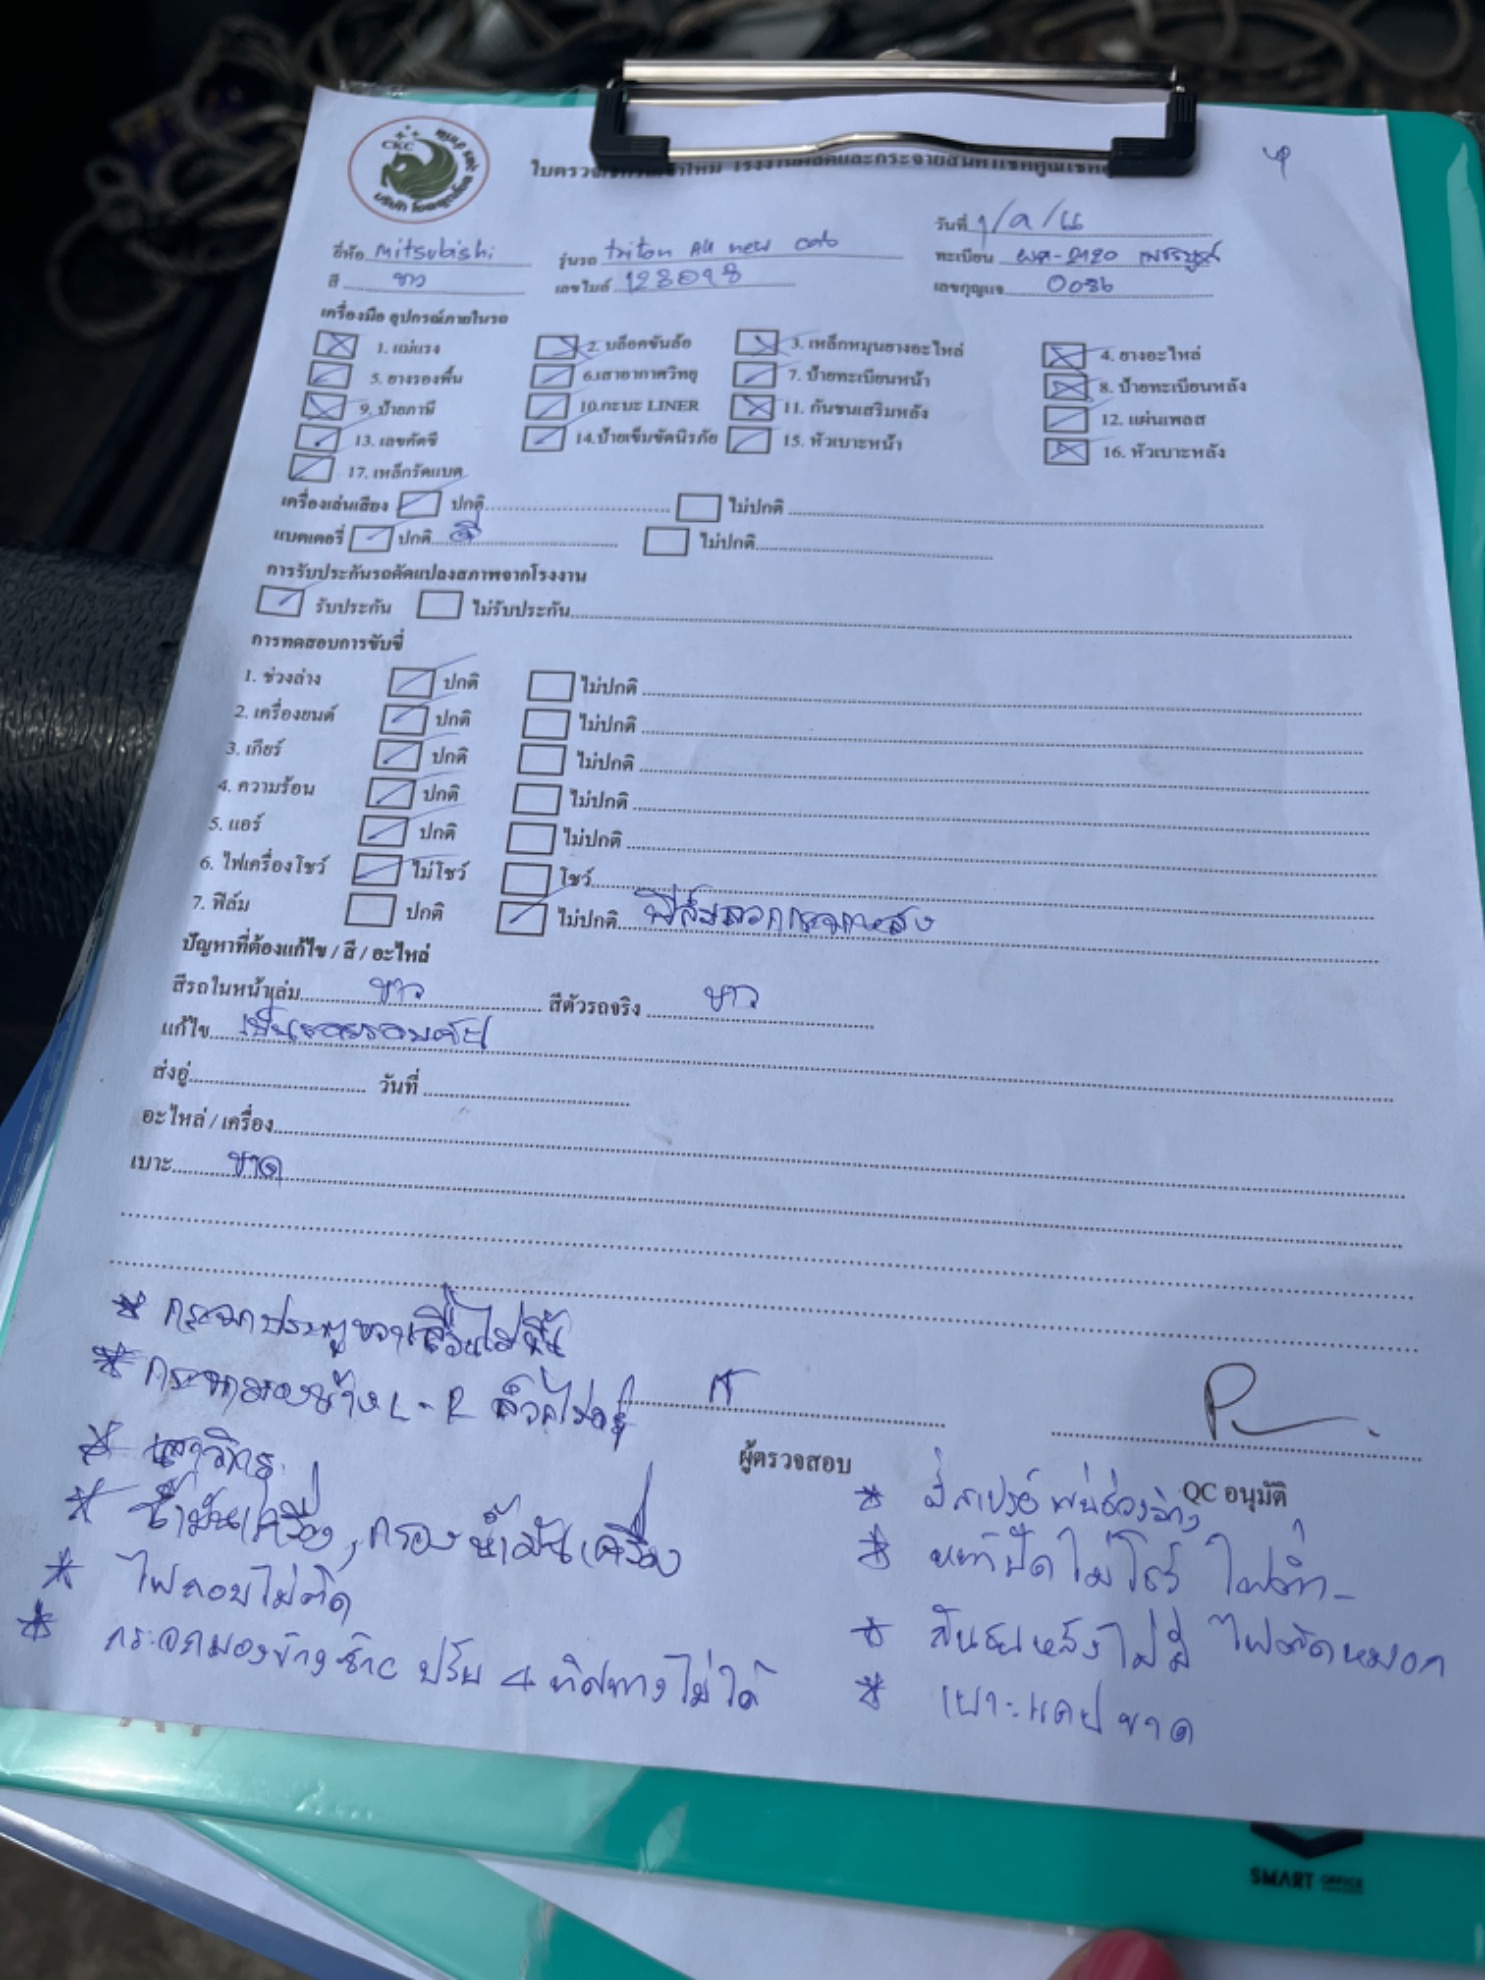 CKC
ใบตรวจ
วันที่
ยี่ห้อ Mitsubishi รุ่นรถ triton All new cab ทะเบียน ผค-2120 เพชรบูรณ์
สี ขาว เลขไมล์ 123098 เลขกุญแจ 0086
เครื่องมือ อุปกรณ์ภายในรถ
1. แม่แรง 2. บล็อคขันล้อ 3. เหล็กหมุนยางอะไหล่ 4. ยางอะไหล่
5. ยางรองพื้น 6.เสาอากาศวิทยุ 7. ป้ายทะเบียนหน้า 8. ป้ายทะเบียนหลัง
9. ป้ายภาษี 10.กะบะ LINER 11. กันชนเสริมหลัง 12. แผ่นเพลส
13. เลขคัตซี 14.ป้ายเข็มขัดนิรภัย 15. หัวเบาะหน้า 16. หัวเบาะหลัง
17. เหล็กรัดแบต
เครื่องเล่นเสียง ปกติ ไม่ปกติ
แบตเตอรี่ ปกติ ดี ไม่ปกติ
การรับประกันรถดัดแปลงสภาพจากโรงงาน
รับประกัน ไม่รับประกัน
การทดสอบการขับขี่
1. ช่วงล่าง ปกติ ไม่ปกติ
2. เครื่องยนต์ ปกติ ไม่ปกติ
3. เกียร์ ปกติ ไม่ปกติ
4. ความร้อน ปกติ ไม่ปกติ
5. แอร์ ปกติ ไม่ปกติ
6. ไฟเครื่องโชว์ ไม่โชว์ โชว์
7. ฟิล์ม ปกติ ไม่ปกติ
ปัญหาที่ต้องแก้ไข / สี / อะไหล่
สีรถในหน้าเล่ม ขาว สีตัวรถจริง ขาว
แก้ไข เป็นรอยรอบคัน
ส่งอู่ วันที่
อะไหล่ / เครื่อง
เบาะ ขาด
* กระจกประตู
* กระจกมองข้าง L - R ล็อคไม่อยู่
ผู้ตรวจสอบ
QC อนุมัติ
* น้ำมันเครื่อง, กรองน้ำมันเครื่อง
* ไฟถอยไม่ติด
* กระจกมองข้างซ้าย ปรับ 4 ทิศทางไม่ได้
* มีสเปรย์พ่นช่องล่าง
* หน้าปัดไม่โชว์ ไฟต่ำ-
* กันชนหลังไม่มี ไฟตัดหมอก
* เบาะแคปขาด
SMART OFFICE